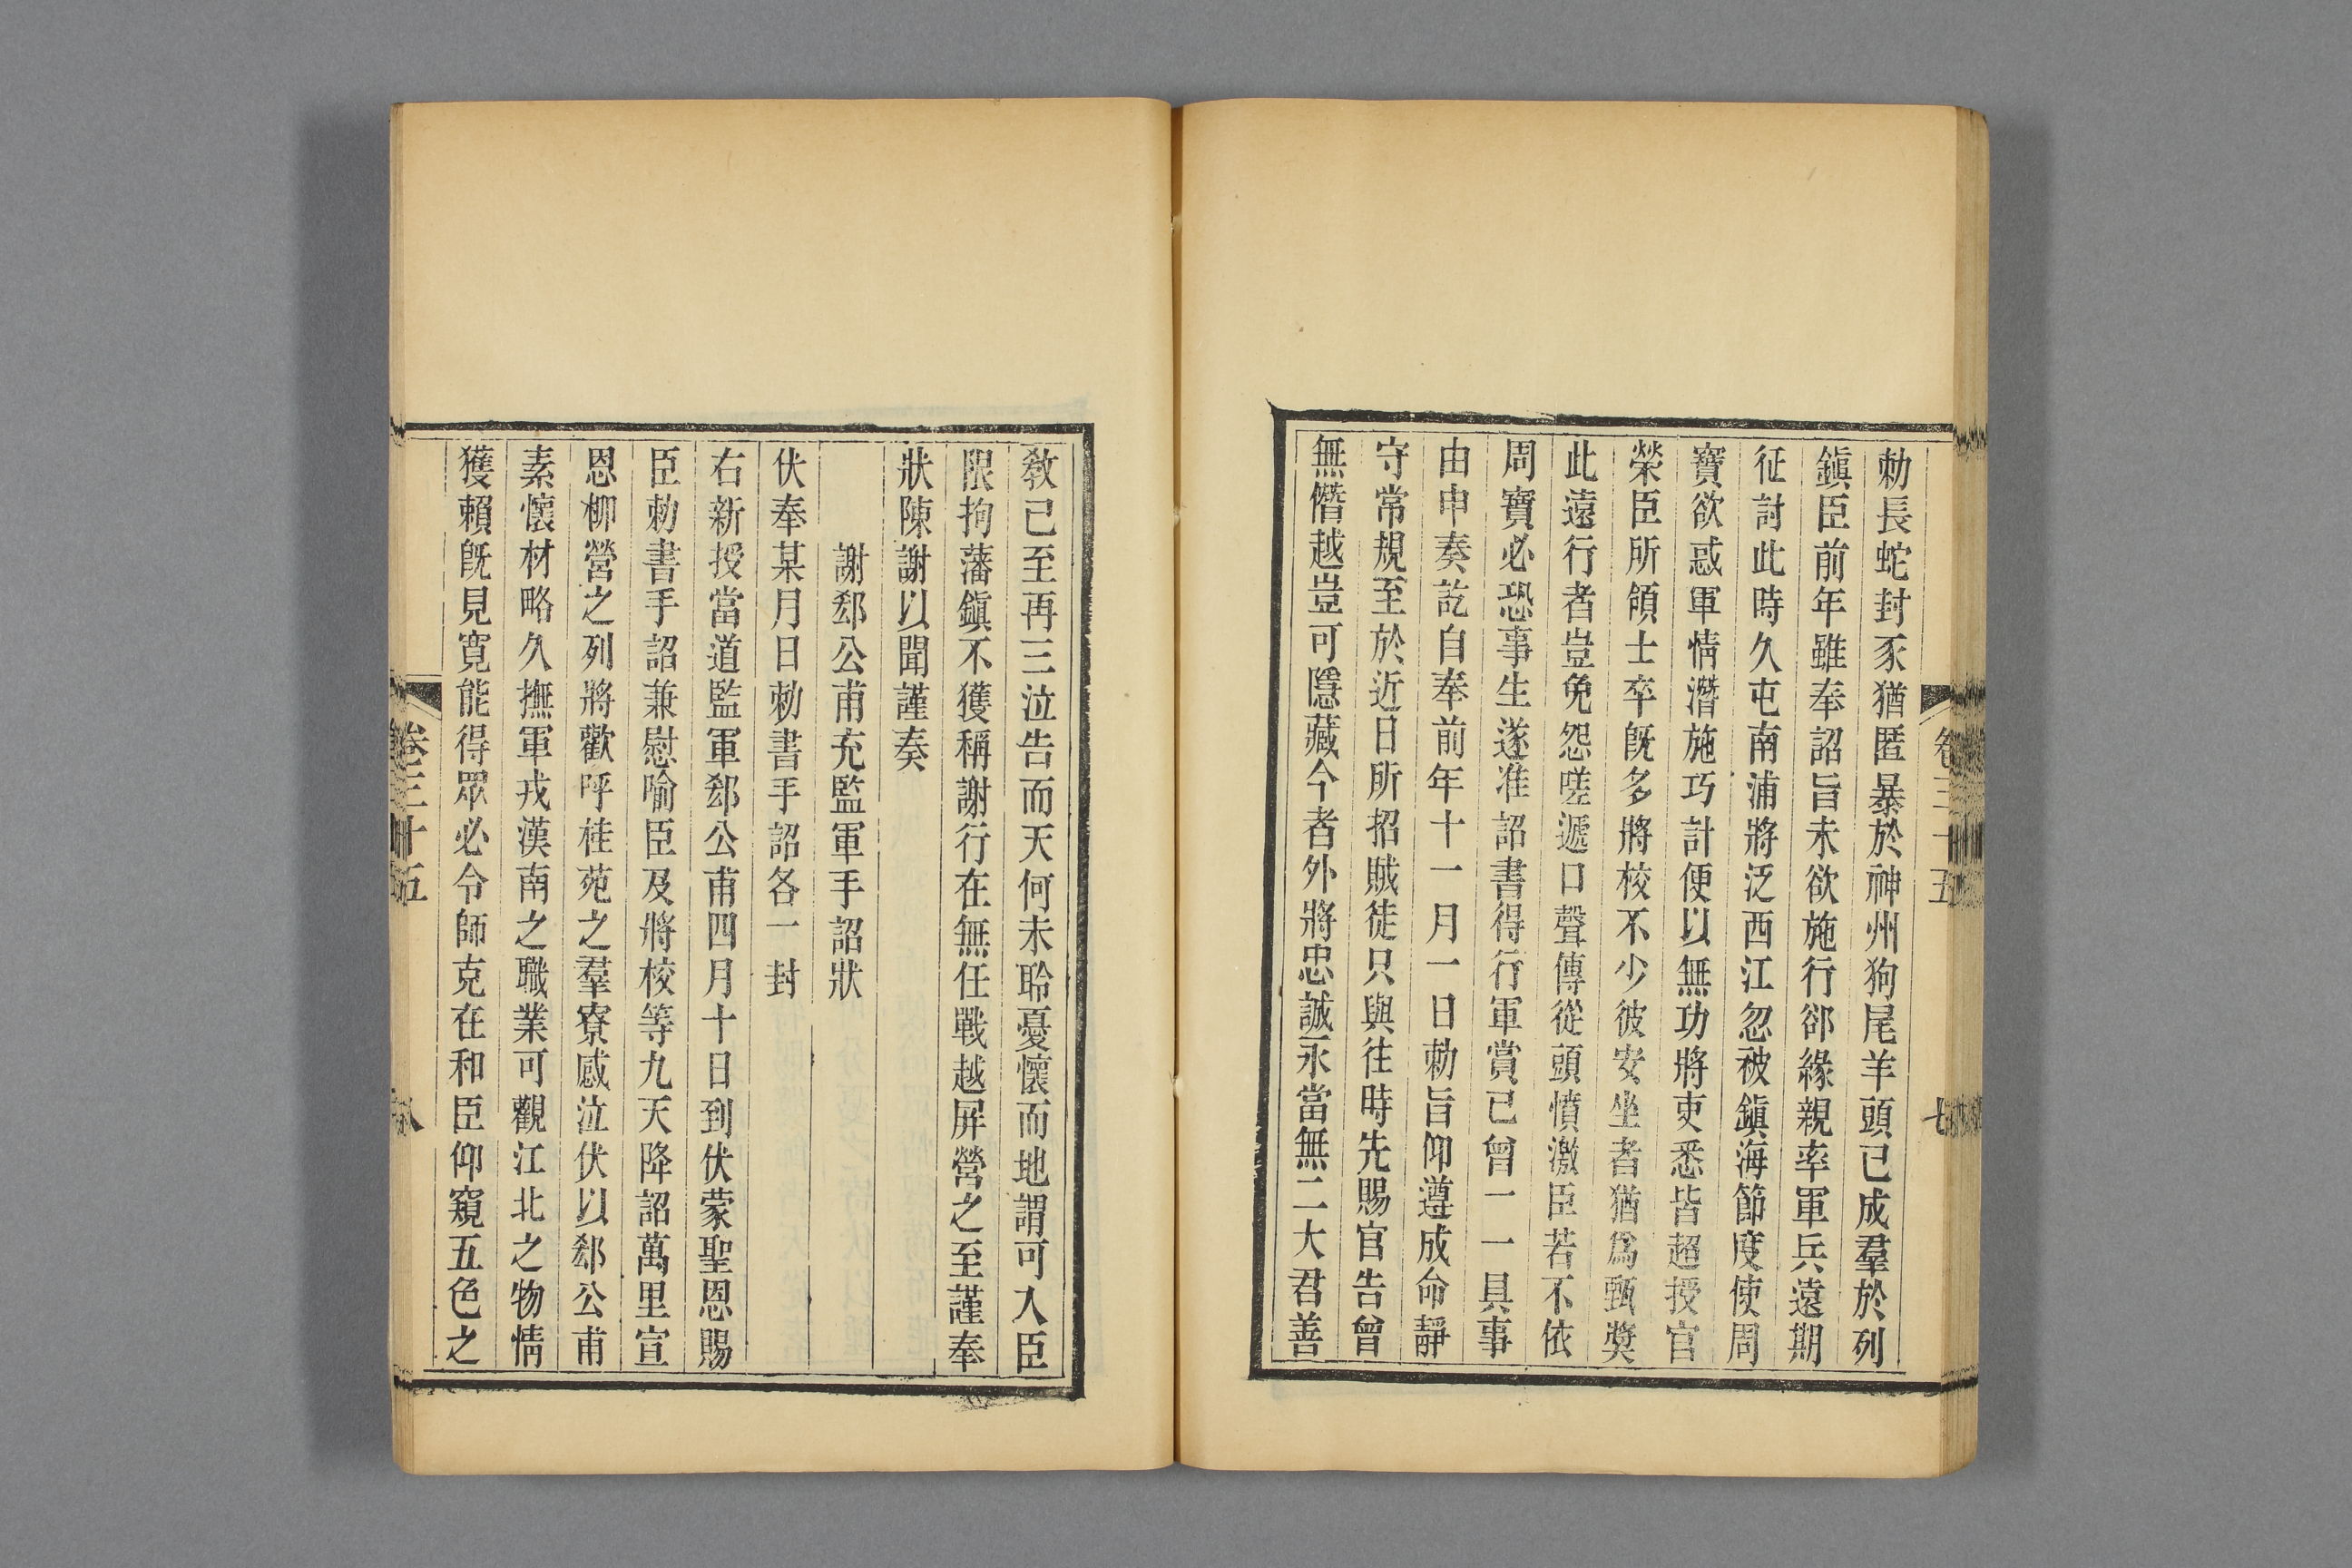 勅長蛇封豕猶匿暴於神州狗尾羊頭已成羣於列
鎭臣前年雖奉詔旨未欲施行郤緣親率軍兵遠期
征討此時久屯南浦將泛西江忽被鎭海節度使周
寶欲惑軍情潛施巧計便以無功將吏悉皆超授官
榮臣所領士卒旣多將校不少彼安坐者猶爲甄奬
此遠行者豈免怨嗟遞口聲傳從頭憤激臣若不依
周寶必恐事生遂准詔書得行軍賞已曾一一具事
由申奏訖自奉前年十一月一日勅旨仰遵成命靜
守常規至於近日所招賊徒只與往時先賜官告曾
無僭越豈可隱藏今者外將忠誠永當無二大君善
卷三十五
七
敎已至再三泣告而天何未聆憂懷而地謂可入臣
限拘藩鎭不獲稱謝行在無任戰越屏營之至謹奉
狀陳謝以聞謹奏
謝郄公甫充監軍手詔狀
伏奉某月日勅書手詔各一封
右新授當道監軍郄公甫四月十日到伏蒙聖恩賜
臣勅書手詔兼慰喻臣及將校等九天降詔萬里宣
恩柳營之列將歡呼桂苑之羣寮感泣伏以郄公甫
素懷材略久撫軍戎漢南之職業可觀江北之物情
獲賴旣見寬能得眾必令師克在和臣仰窺五色之
卷三十五
八